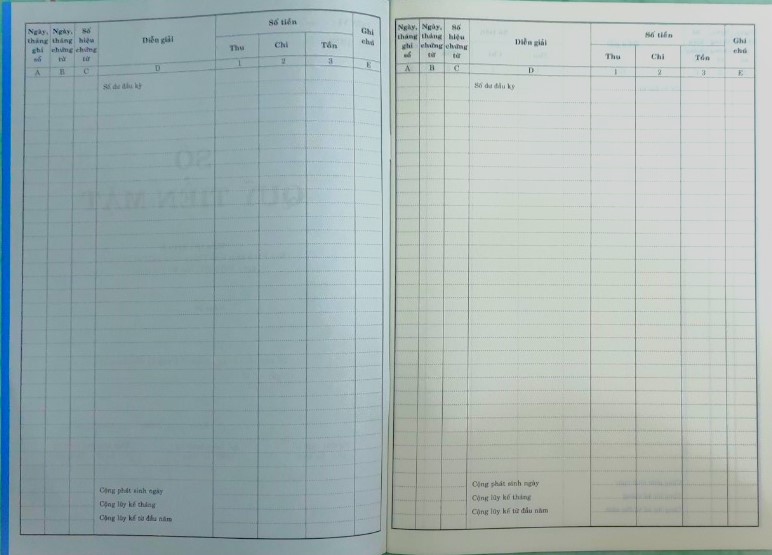 Ngày, tháng ghi sổ
Ngày, tháng chứng từ
Số hiệu chứng từ
Diễn giải
Số tiền
Thu
Chi
Tồn
Ghi chú
A
B
C
D
1
2
3
E
Số dư đầu kỳ
Cộng phát sinh ngày
Cộng lũy kế tháng
Cộng lũy kế từ đầu năm
Ngày, tháng ghi sổ
Ngày, tháng chứng từ
Số hiệu chứng từ
Diễn giải
Số tiền
Thu
Chi
Tồn
Ghi chú
A
B
C
D
1
2
3
E
Số dư đầu kỳ
Cộng phát sinh ngày
Cộng lũy kế tháng
Cộng lũy kế từ đầu năm